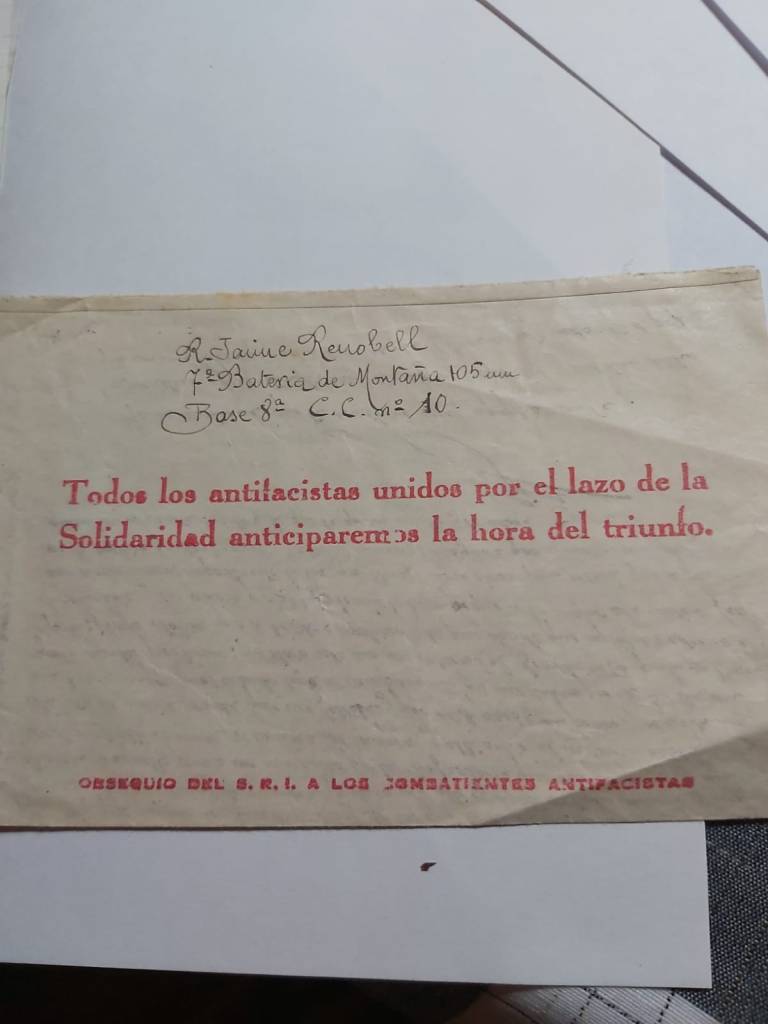 R. Jaime Renobell
7ª Bateria de Montaña 105 mm
Base 8ª C.C. nº 10.
Todos los antifacistas unidos por el lazo de la
Solidaridad anticiparemos la hora del triunfo.
OBSEQUIO DEL S. R. I. A LOS COMBATIENTES ANTIFACISTAS